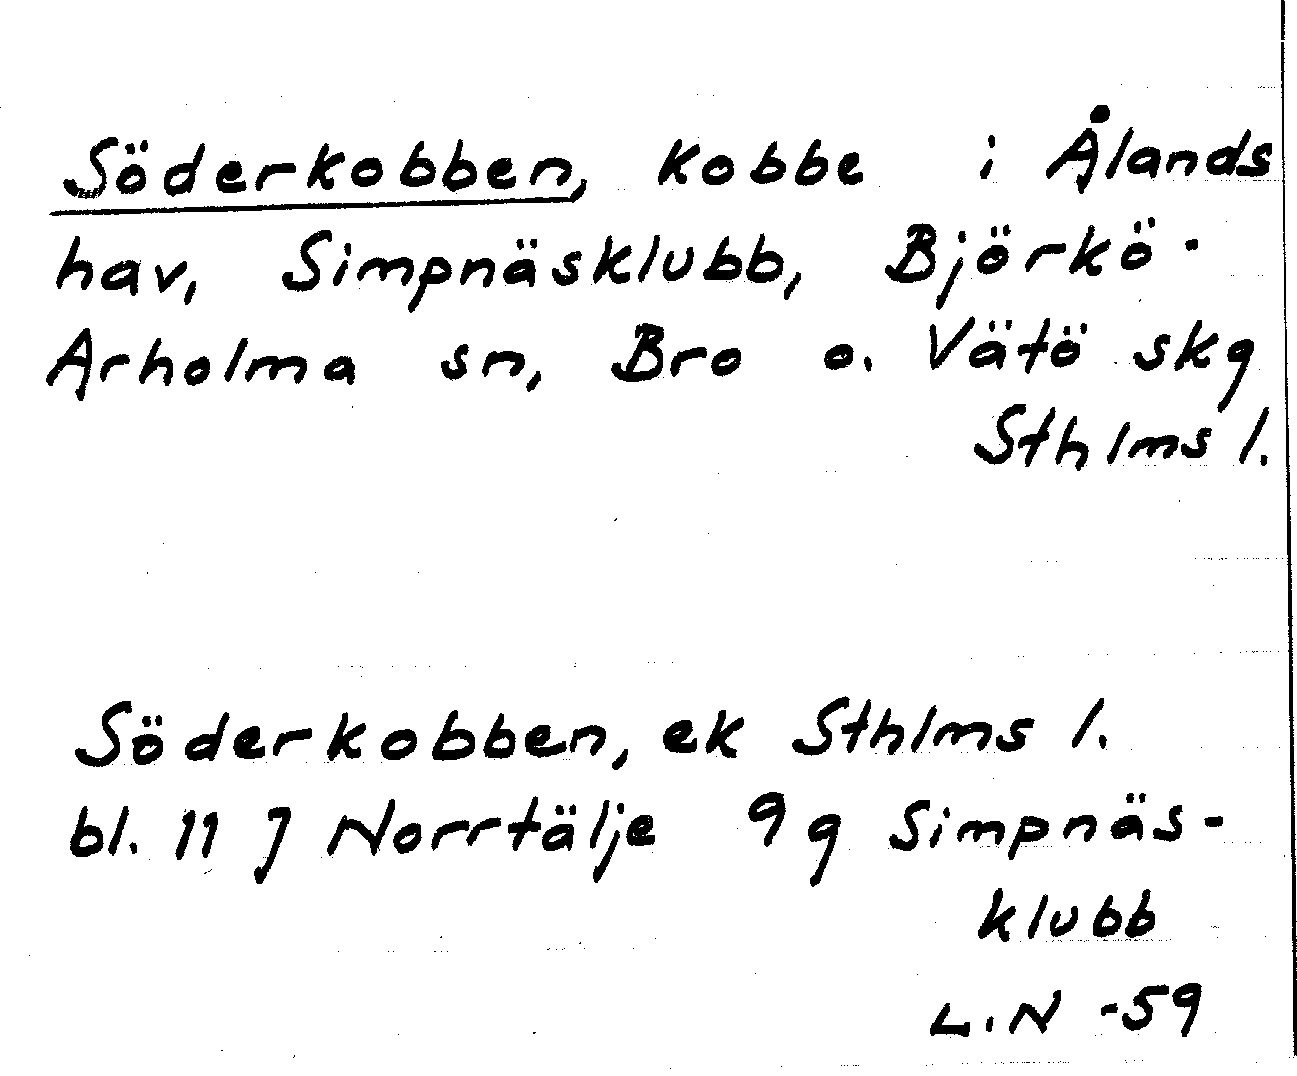 Söderkobben, kobbe i Ålands
hav, Simpnäsklubb, Björkö-
Arholma sn, Bro o. Vätö skg
Sthlms l.
Söderkobben, ek Sthlms l.
bl. 11 J Norrtälje 9 g Simpnäs-
klubb
L.N -59